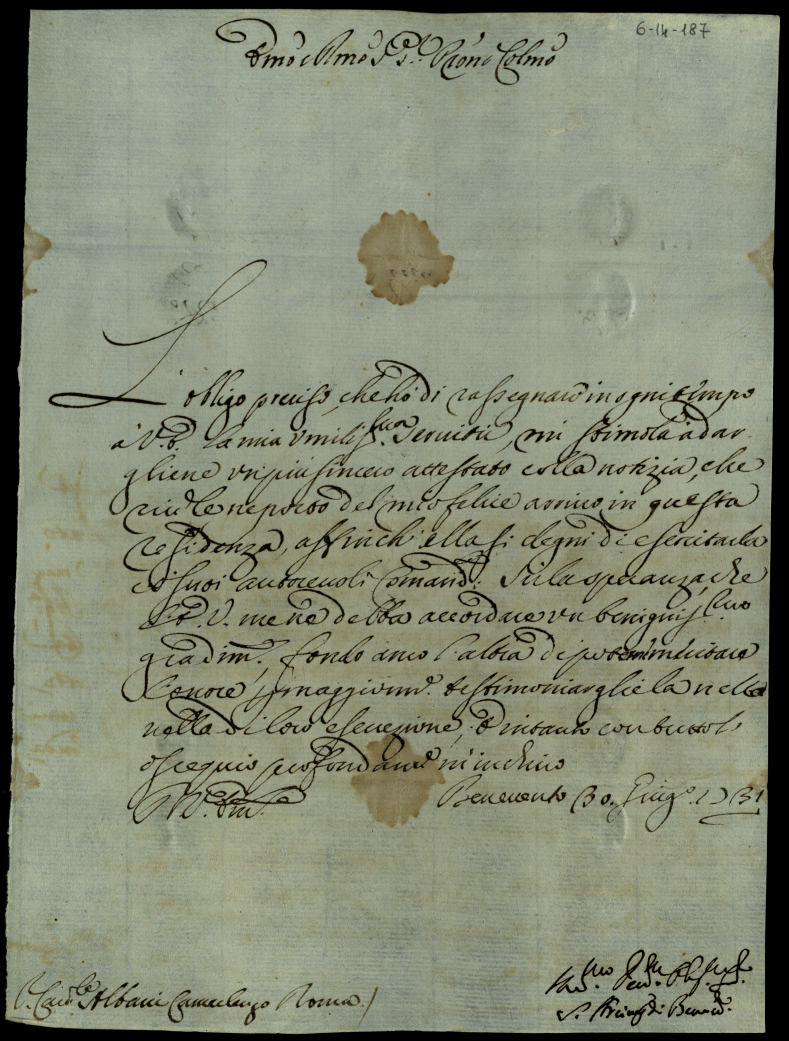 6-14-187
Emo e Rmo Sig.r Prone Colmo
L'obligo preciso, che hò di rassegnare in ogni tempo
à V.E. la mia umiliss.ma servitù, mi stimola à dar-
gliene un più sincero attestato colla notizia, che
riverente porto del mio felice arrivo in questa
residenza, affinch'ella si degni di esercitarla
co' suoi autorevoli comandi. Sù la speranza, che
l'E.V. me ne debba accordare un benigniss.mo
gradim.to, fondo anco l'altra di poter meritare
l'onore, maggiorm.te testimoniargliela nella
nella di loro esecuzione, e intanto con tutto l'
ossequio profondam.te m'inchino
Di V. Em.
Benevento 30. Giug.o 1731
S. Card.le Albani Camerlengo Roma
S. Arciv. di Benev.